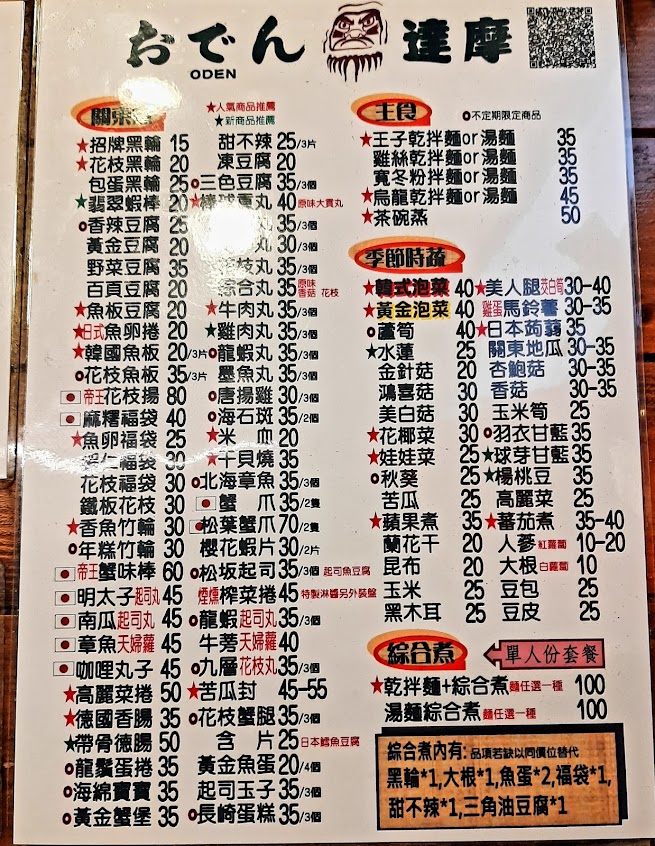 おでん 達摩
ODEN
★人氣商品推薦
★新商品推薦
★招牌黑輪 15
★花枝黑輪 20
包蛋黑輪 25
★翡翠蝦棒 20
香辣豆腐 25
黃金豆腐 20
野菜豆腐 35
百頁豆腐 20
★魚板豆腐 20
★日式魚卵捲 20
★韓國魚板 20/3片
花枝魚板 35/3片
帝王花枝揚 80
麻糬福袋 40
★魚卵福袋 25
仁福袋 30
花枝福袋 30
鐵板花枝 30
★香魚竹輪 30
年糕竹輪 30
帝王蟹味棒 60
明太子起司丸 45
南瓜起司丸 45
章魚天婦羅 45
咖哩丸子 45
★高麗菜捲 50
★德國香腸 35
★帶骨德腸 50
龍鬚蛋捲 35
海綿寶寶 35
黃金蟹堡 35
甜不辣 25/3片
凍豆腐 20
三色豆腐 35/3個
丸 40 原味大貢丸
丸 35/3個
丸 30/3個
枝丸 35/3個
綜合丸 35 原味 香菇 花枝
★牛肉丸 35/3個
★雞肉丸 35/3個
龍蝦丸 35/3個
墨魚丸 35/3個
唐揚雞 30/3個
海石斑 35/2個
★米血 20
★干貝燒 35
北海章魚 35/3個
蟹爪 35/2隻
松葉蟹爪 70/2隻
櫻花蝦片 30/2片
松坂起司 35/3個 起司魚豆腐
煙燻榨菜捲 45 特製淋醬另外裝盤
龍蝦起司丸 35/3個
牛蒡天婦羅 40
九層花枝丸 35/3個
★苦瓜封 45-55
花枝蟹腿 35/3個
含片 25 日本鱈魚豆腐
黃金魚蛋 20/4個
起司玉子 35/3個
長崎蛋糕 35/3個
主食 不定期限定商品
★王子乾拌麵or湯麵 35
雞絲乾拌麵or湯麵 35
寬冬粉拌麵or湯麵 35
★烏龍乾拌麵or湯麵 45
★茶碗蒸 50
季節時蔬
★韓式泡菜 40
★黃金泡菜 40
蘆筍 40
★水蓮 25
金針菇 20
鴻喜菇 30
美白菇 30
★花椰菜 30
★娃娃菜 25
秋葵 25
苦瓜 25
★蘋果煮 35
蘭花干 20
昆布 20
玉米 25
黑木耳 25
★美人腿 茭白筍 30-40
雞蛋馬鈴薯 30-35
★日本蒟蒻 35
關東地瓜 30-35
杏鮑菇 30-35
香菇 30-35
玉米筍 25
羽衣甘藍 35
★球芽甘藍 35
★楊桃豆 35
高麗菜 25
★蕃茄煮 35-40
人蔘 紅蘿蔔 10-20
大根 白蘿蔔 10
豆包 25
豆皮 25
綜合煮 單人份套餐
★乾拌麵+綜合煮 麵任選一種 100
湯麵綜合煮 麵任選一種 100
綜合煮內有: 品項若缺以同價位替代
黑輪*1,大根*1,魚蛋*2,福袋*1,
甜不辣*1,三角油豆腐*1